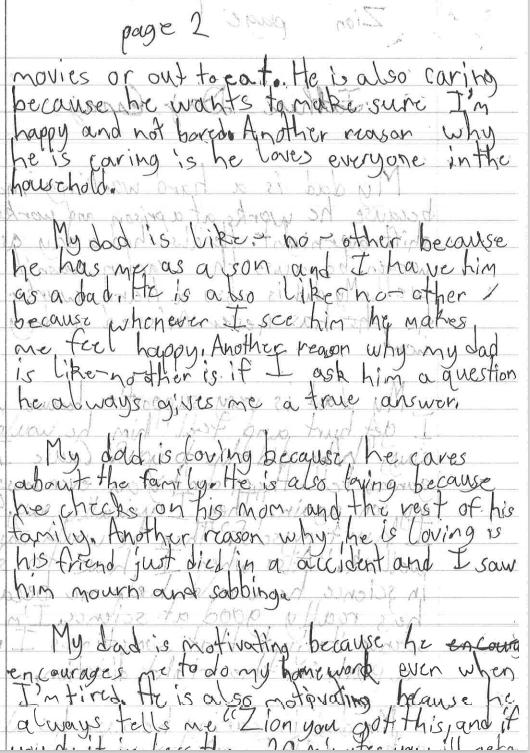 page 2
movies or out to eat. He is also caring
because he wants to make sure I'm
happy and not bored. Another reason why
he is caring is he loves everyone in the
houshold.
My dad is like-no-other because
he has me as a son and I have him
as a dad. He is also like-no-other
because whenever I see him he makes
me feel happy. Another reason why my dad
is like-no-other is if I ask him a question
he always gives me a true answer.
My dad is loving because he cares
about the family. He is also loving because
he checks on his mom and the rest of his
family. Another reason why he is loving is
his friend just died in a accident and I saw
him mourn and sobbing.
My dad is motivating because he encourg
encourages me to do my homework even when
I'm tired. He is also motivating because he
always tells me "Zion you got this, and if